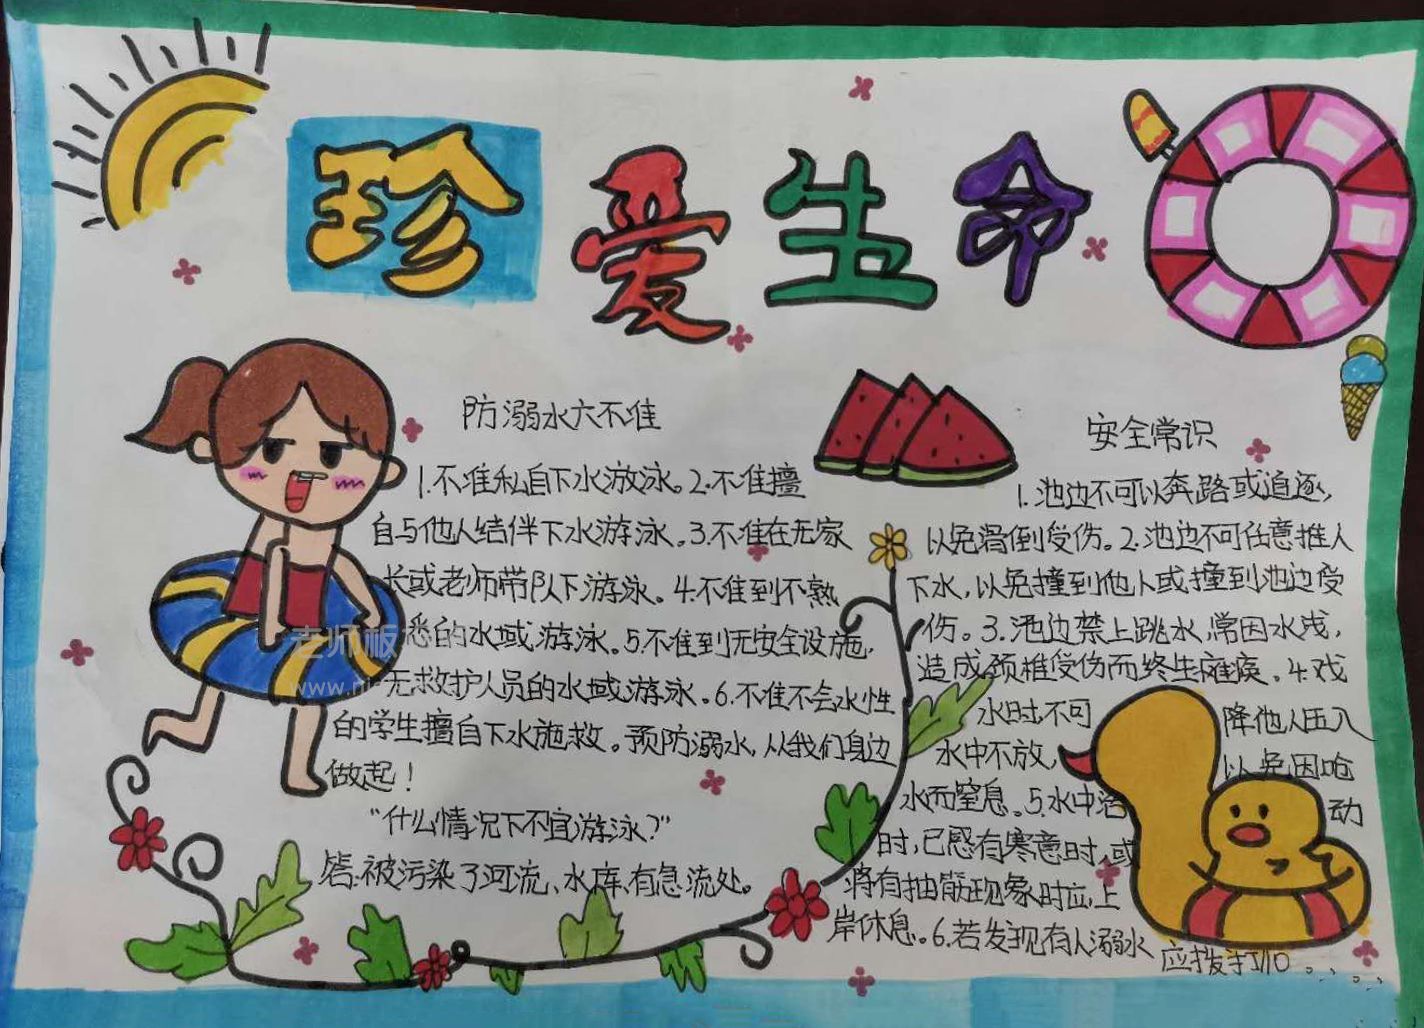 珍爱生命
防溺水六不准
1.不准私自下水游泳。2.不准擅
自与他人结伴下水游泳。3.不准在无家
长或老师带队下游泳。4.不准到不熟
悉的水域游泳。5.不准到无安全设施,
无救护人员的水域游泳。6.不准不会水性
的学生擅自下水施救。预防溺水,从我们身边
做起!
“什么情况下不宜游泳?”
答:被污染了河流、水库、有急流处。
安全常识
1.池边不可以奔跑或追逐,
以免滑倒受伤。2.池边不可任意推人
下水,以免撞到他人或撞到池边受
伤。3.池边禁上跳水,常因水浅,
造成颈椎受伤而终生瘫痪。4.戏
水时,不可 降他人压入
水中不放, 以免因呛
水而窒息。5.水中活 动
时,已感有寒意时,或
将有抽筋现象时应上
岸休息。6.若发现有人溺水
应拨打110。。。。
老师板
www.